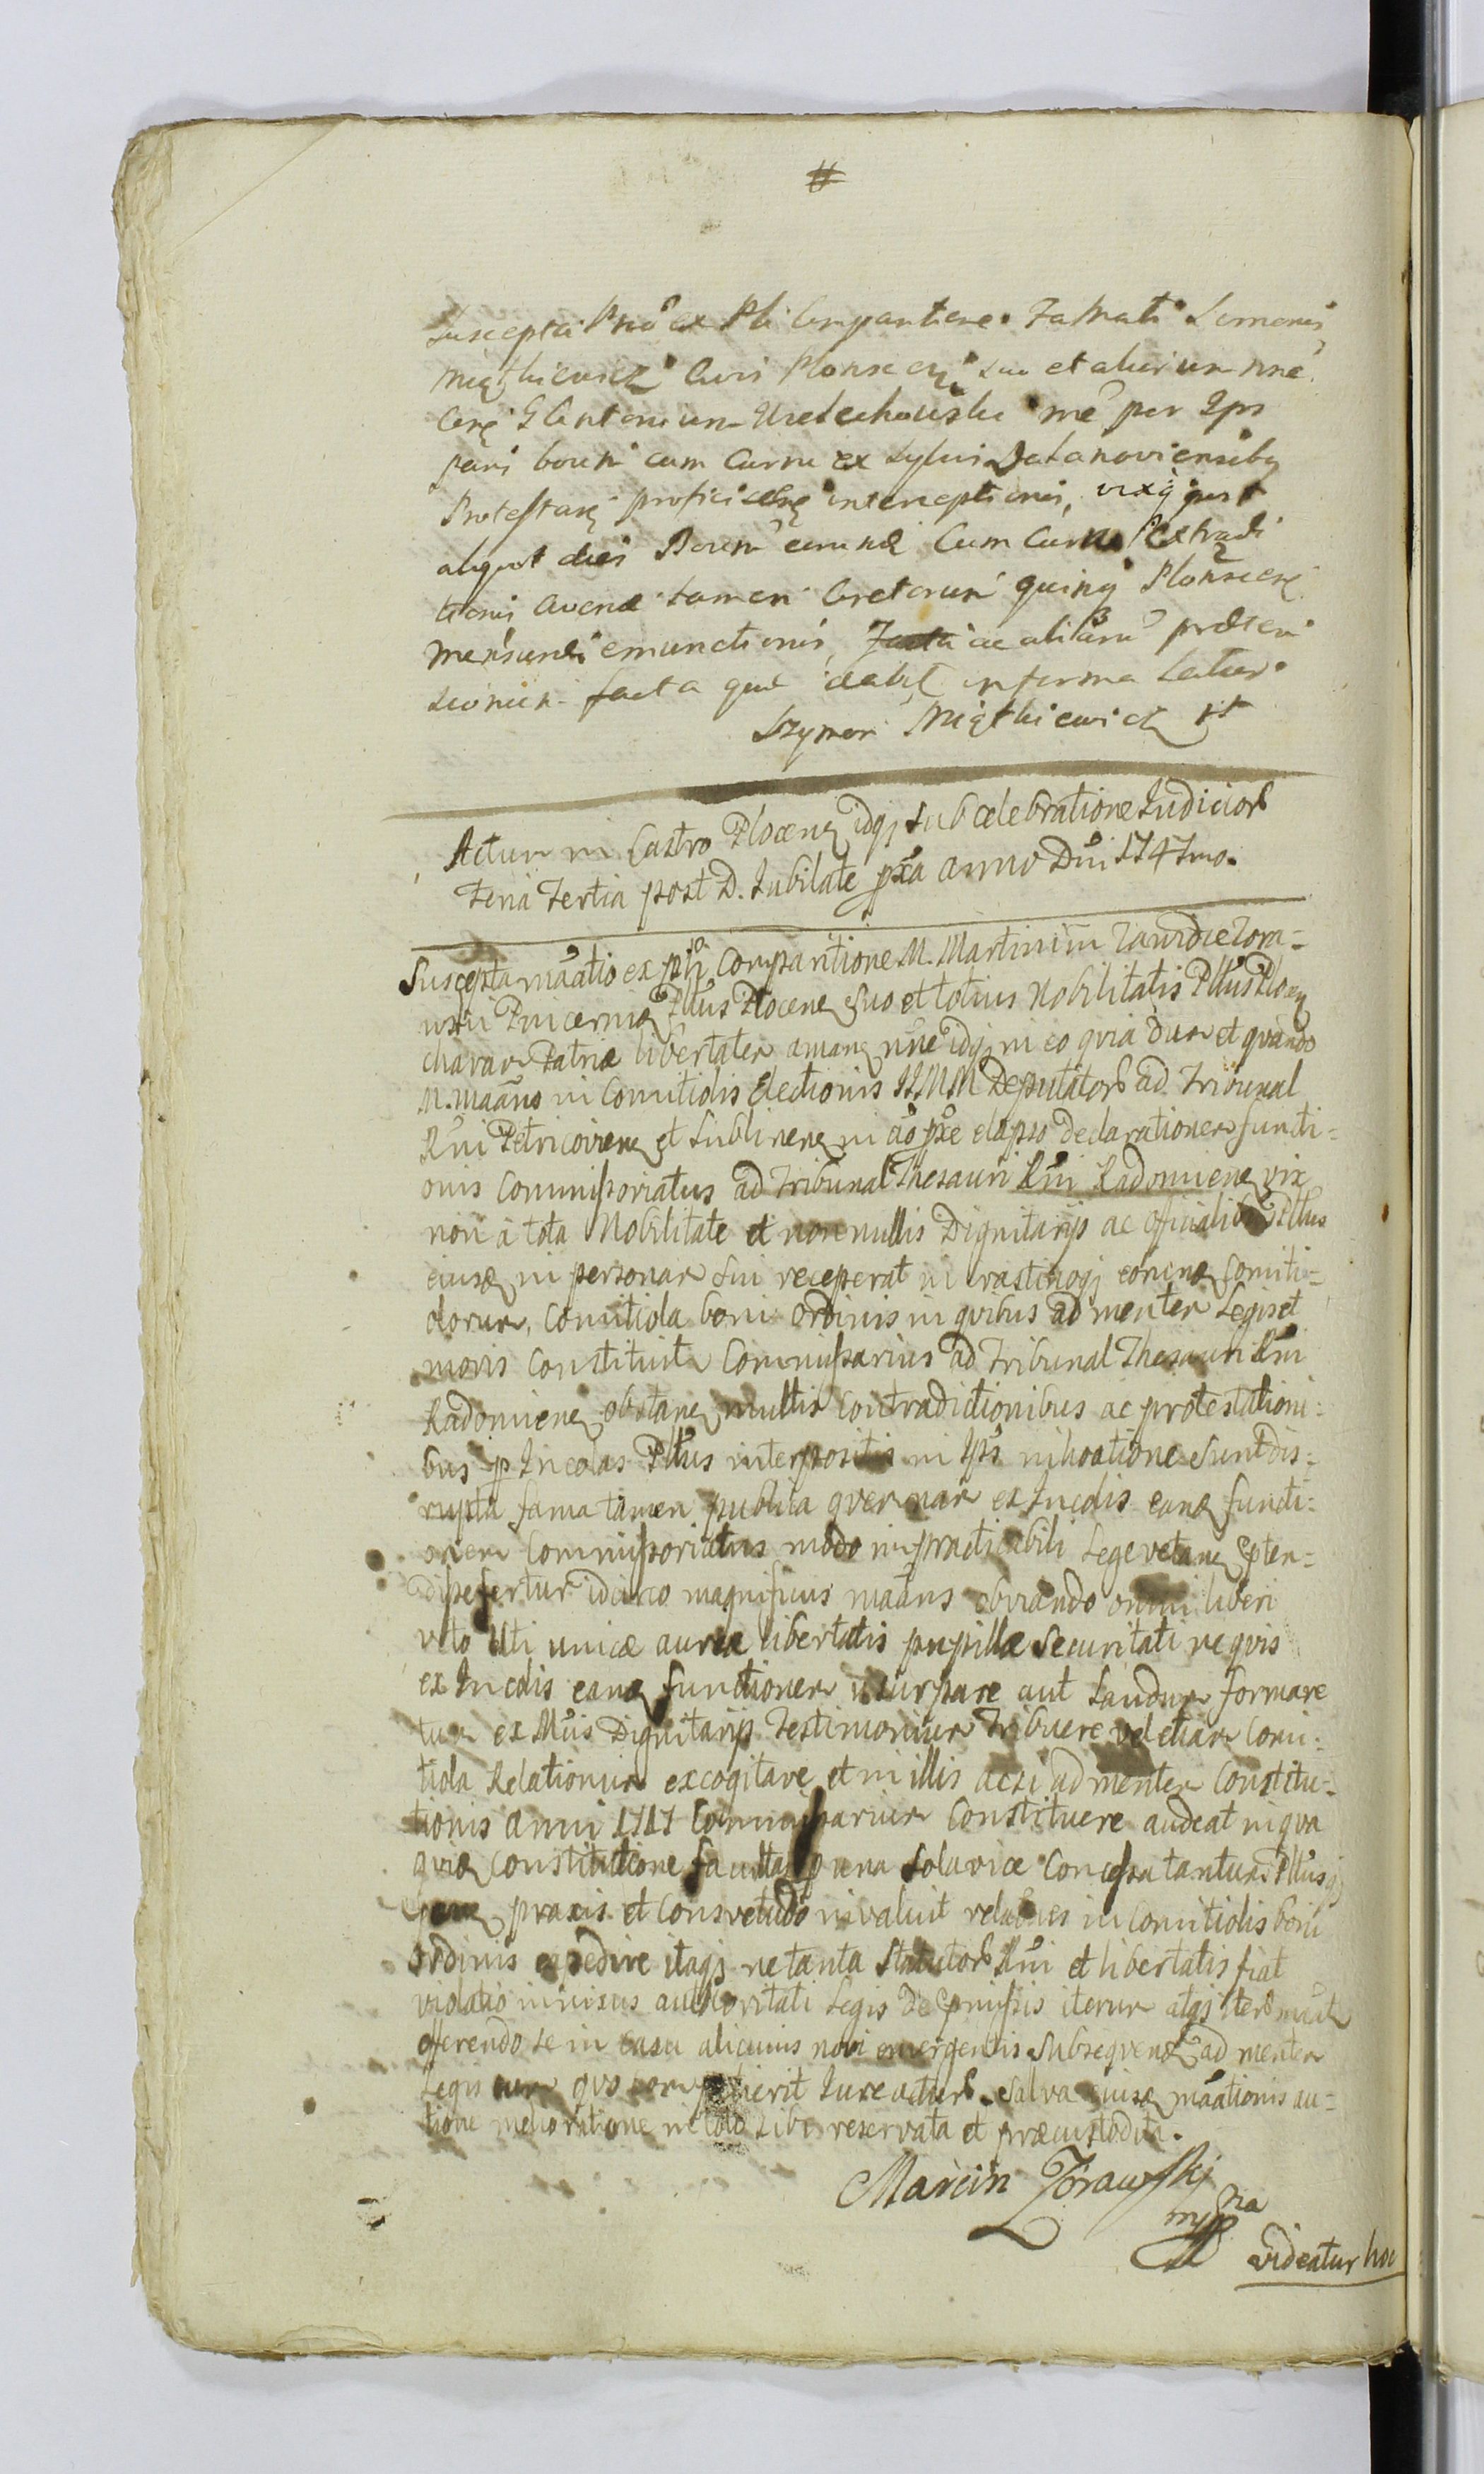 Suscepta Prõ ex Pli Comparitione Famati Simonis
Miąthiewicz Civis Plonscen suo et aliorum nne
Cerę G Antonium Uielechowski mẽ per Ips
paris boum cum Curru ex Sylvis Dalanoviensibꝫ
Protestanę proficiscenę interceptionis, vixq post
aliquot dies Boum eorundę Cum Curru Extradi
tionis avenæ tamen Coretorum quinq Plonscenę
mensuræ emunctionis, ac aliaru præten
sionum facta que dabit in forma latior.
Szymon Miąthiewicz
Actum in Castro Plocenę idqꝫ sub celebratione Judicior
Feria Tertia post D. Jubilate pxa anno Dni 1747mo.
Suscepta mãatio ex plî Comparitione M. Martinim Zawidie Zora-
wski Pincernæ Pltus Plocenę suo et totius Nobilitatis Pltus Plocenę
charam Patriæ libertatem amanę nne idqꝫ in eo quia dum et quando
M. Maãns in Comitiolis Electionis IIMM Deputator ad Tribunal
Rni Petricovienę et Lublinenę in ãõ pxe elapso declarationem functi-
onis Commissoriatus ad Tribunal Thesauri Rni Radomienę vix
non à tota Nobilitate et non nullis Dignitarijs ac officialibꝫ Pltus
eiusdę in personam sui receperat in crastinoqꝫ eorundę Comiti-
olorum, Comitiola boni ordinis in quibus ad mentem Legis et
moris constituit Commissarius ad Tribunal Thesauri Rni
Radomienę obstanę multis contradictionibus ac protestationi-
bus p Incolas Pltus interpositis in Ips inhoatione sunt dis-
rupta fama tamen publica quemnam ex Incolis eandę functi-
onem Commissoriatus modo inpracticabili Lege vetanę opten-
disse fertur idcirco magnificus maãns obviando omni liberi
veto Uti unicæ aureæ libertatis pupillæ Securitati ne quis
ex Incolis eandę functionem usurpare aut Laudum formare
tum ex Mũis Dignitarijs Testimonium Tribuere vel etiam Comi-
tiola Relationum excogitare et in illis acsi ad mentem Constitu-
tionis anni 1717 Commissarium Constituere audeat in qua
quidę constitutione facultas plena Concessa tantum Pltusqꝫ
praxis et Consvetudo invaluit relaõnes in Comitiolis boni
ordinis expedire itaqꝫ ne tanta Statutor Rni et libertatis fiat
violatio innixus authoritati Legis de præmissis iterum atqꝫ iter maãt
offerendo se in casu alicuius novi emergentis Subsequendę ad mentem
Legis cum quo competierit Jure acturꝫ. Salva eiusdę mãationis au-
tione melioratione in toto sibi reservata et præcustodita.
Marcin Zorawskj
mppria
videatur hoc